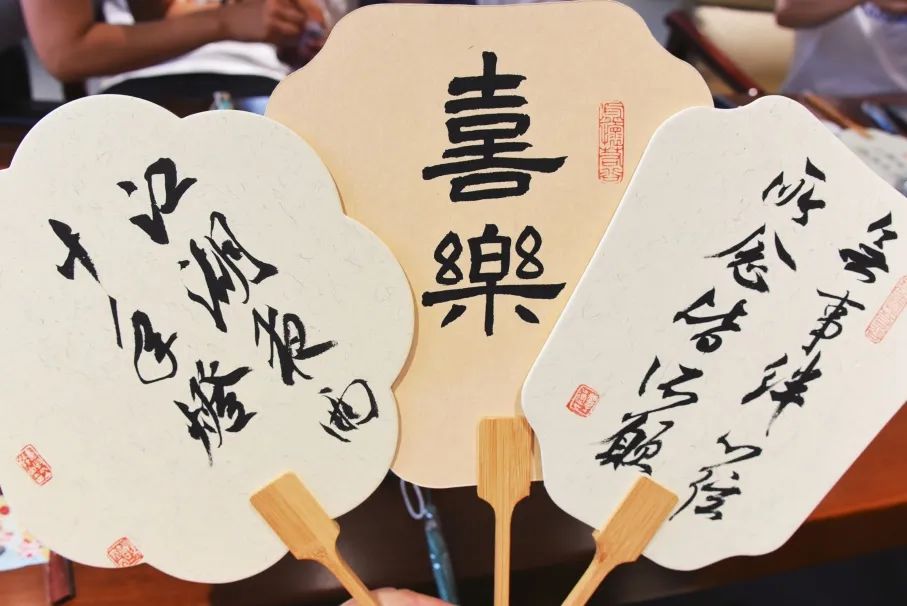 江湖夜雨
十年燈
喜樂
无事绊心弦
所念皆如願